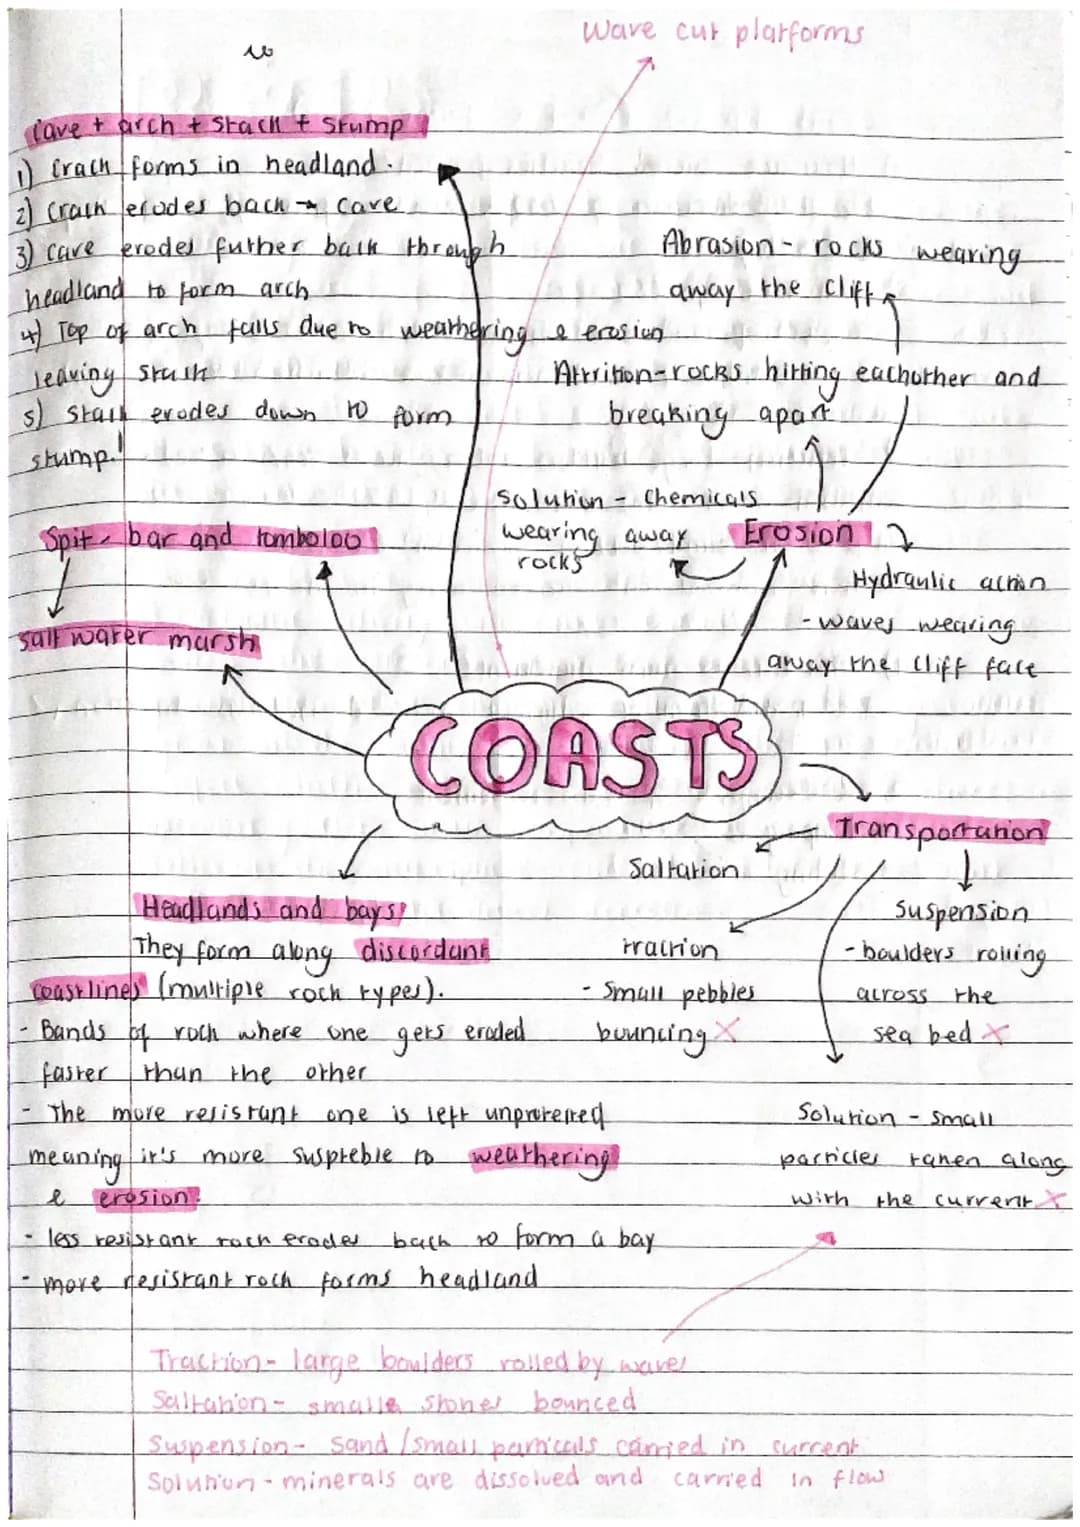 Wave cut platforms
Cave + arch + Stack + Stump
1) Crack forms in headland.
2) Crack erodes back → cave
3) Cave erodes futher back through
headland to form arch
4) Top of arch falls due to weathering & erosion
leaving stack
5) Stack erodes down to form
stump.
Abrasion - rocks wearing
away the cliff
Attrition - rocks hitting eachother and
breaking apart
Solution - Chemicals
wearing away
rocks
Erosion
Hydraulic action
- waves wearing
away the cliff face
Spit, bar and tomboloo
salt water marsh
COASTS
Transportation
Saltation
traction
- Small pebbles
bouncing X
Suspension
- boulders rolling
across the
sea bed X
Solution - small
particles taken along
with the current X
Headlands and bays
They form along discordant
coastlines (multiple rock types).
- Bands of rock where one gets eroded
faster than the other
- The more resistant one is left unprotected
meaning it's more suspteble to weathering
& erosion.
- less resistant rock erodes back to form a bay
- more resistant rock forms headland
Traction - large boulders rolled by waves
Saltation - smalle stones bounced
Suspension - Sand / small particals carried in current
Solution - minerals are dissolved and carried in flow